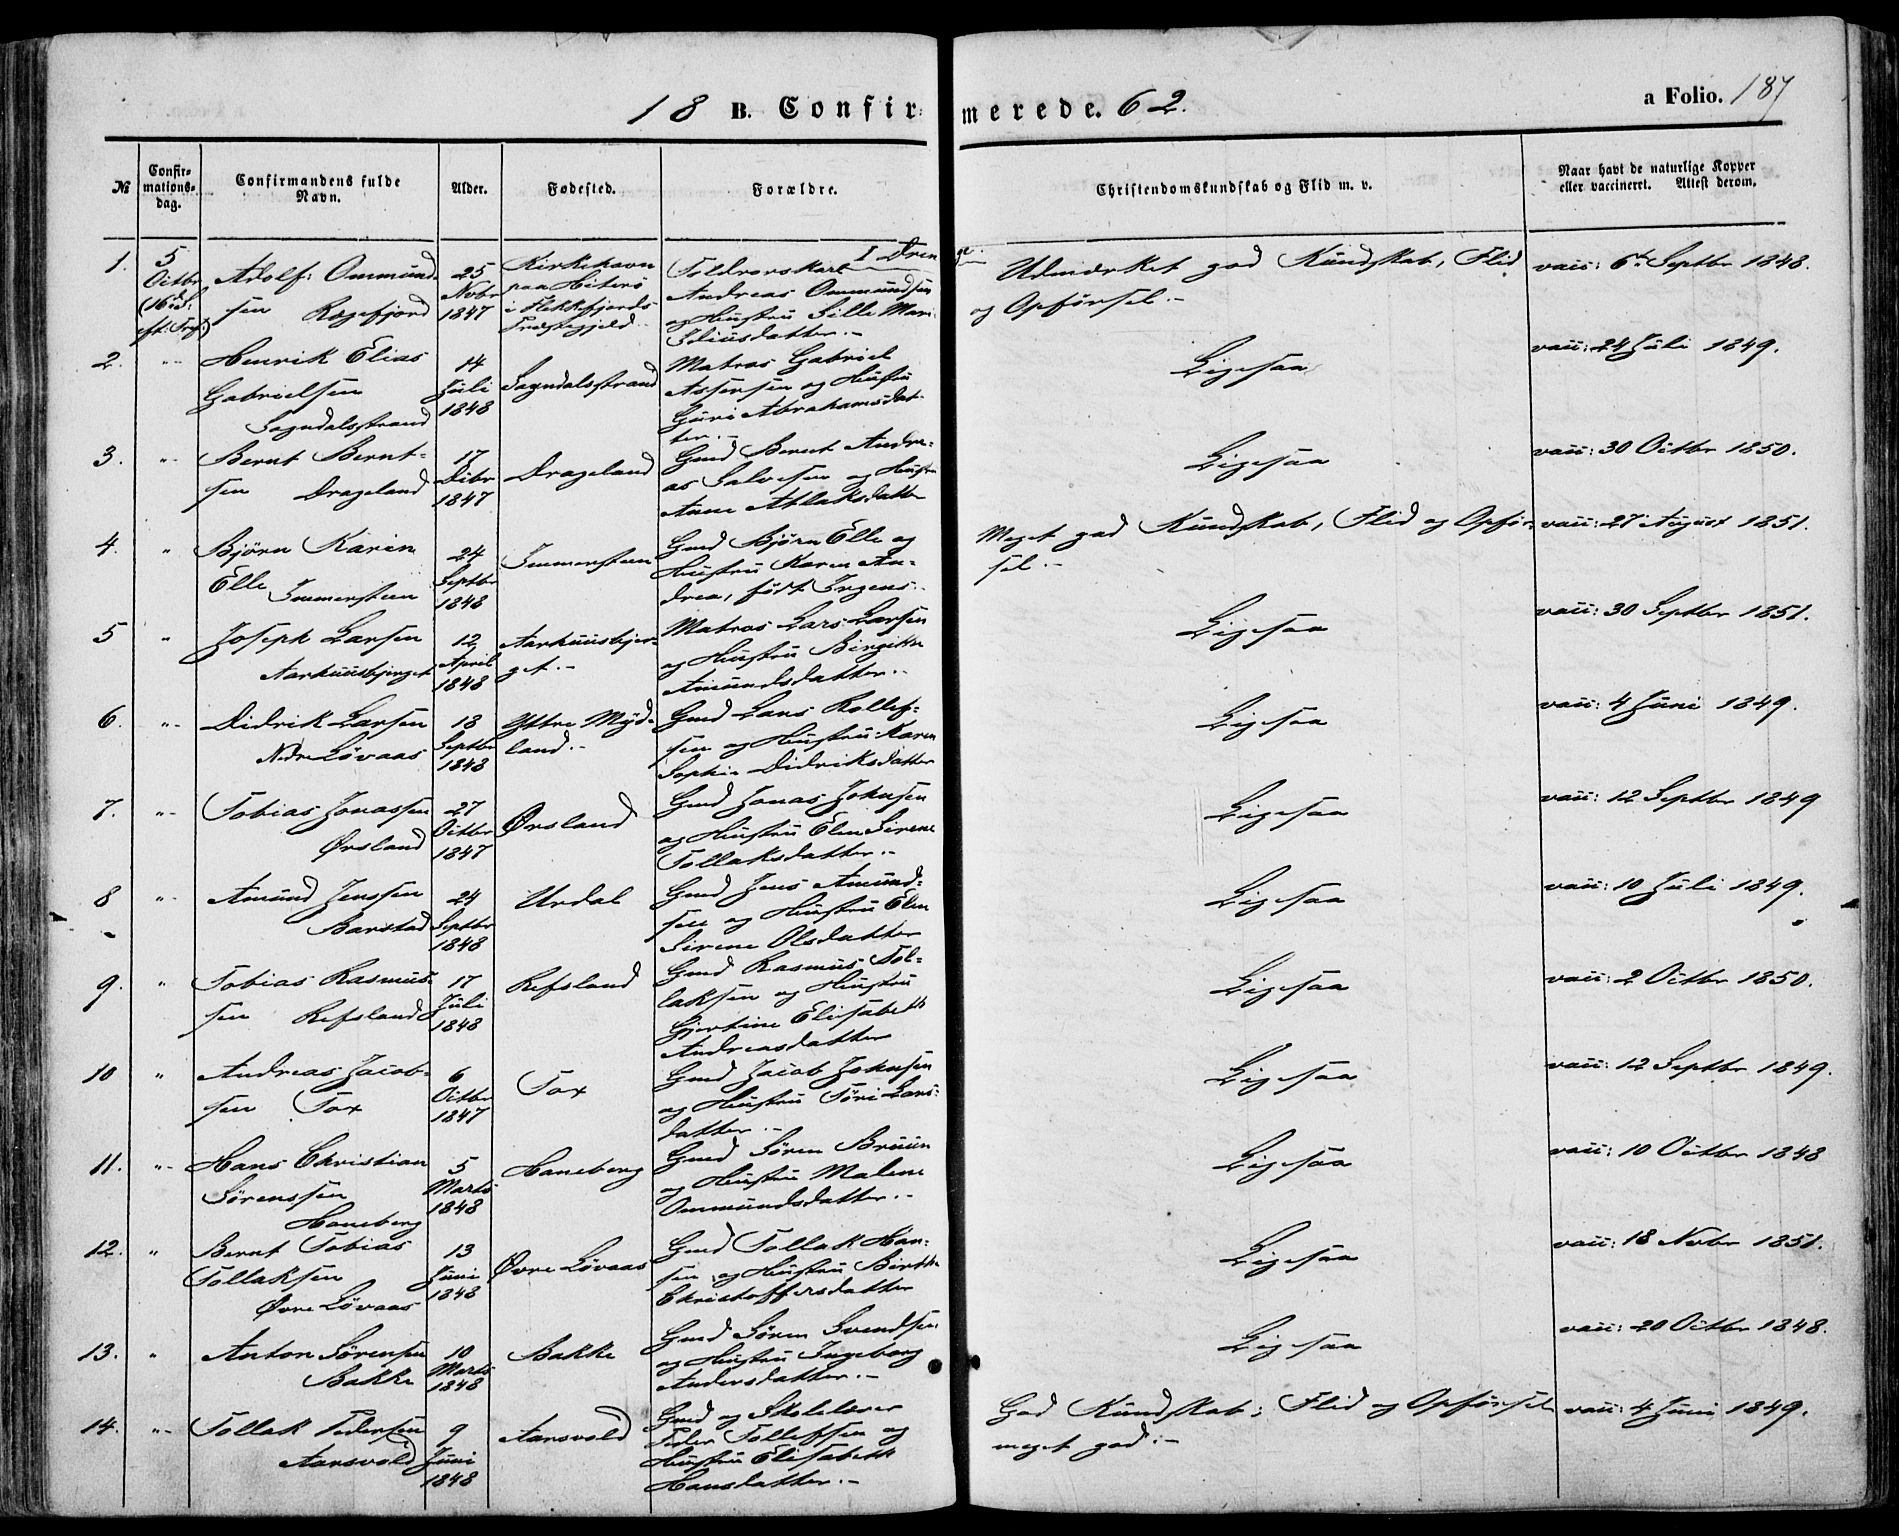 18 B. Confirmerede. 62.
a Folio. 187
№
Confirmations-dag.
Confirmandens fulde Navn.
Alder.
Fødested.
Forældre.
Christendomskundskab og Flid m. v.
Naar havt de naturlige Kopper eller vaccineret. Attest derom.
I Drenge.
1. 5 Octbr (16de S. eft: Tref:)
Adolf Ommund-
sen Rægefjord
25 Novbr 1847
Kirkehavn
paa Hiterö
i Flekkefjords
Præstegjeld.
Toldrorskarl
Andreas Ommundsen
og Hustru Sille Mari
datter.-
Udmærket god Kundskab, Flid
og Opførsel.-
vacc: 6te Septbr 1848.
2. "-
Henrik Elias
Gabrielsen
Sogndalsstrand
14 Juli 1848
Sogndalsstrand
Matros Gabriel
Assersen og Hustru
Guri Abrahamsdat-
ter.-
Ligesaa
vacc: 24 Juli 1849.
3. "-
Bernt Bernt-
sen Drageland
17 Dcbr 1847
Drageland
Gmd Bernt Andre-
as Salvesen og Hustru
Anne Atlaksdatter
Ligesaa
vacc: 30 Octbr 1850.
4. "
Björn Karin
Elle Immersteen
24 Septbr 1848
Immersteen
Gmd Björn Elle og
Hustru Karen An-
drea, født Irgens.-
Meget god Kundskab, Flid og Opför-
sel.-
vacc: 27 August 1851.
5 "
Joseph Larsen
Aarhuusbjerget
12 April 1848
Aarhuusbjer-
get.-
Matros Lars Larsen
og Hustru Birgitte
Amundsdatter.-
Ligesaa
vacc: 30 Septbr 1851.
6. "-
Didrik Larsen
Nedre Lövaas
18 Septbr 1848
Yttre Myd-
land.-
Gmd Lars Rollef-
sen og Hustru Karen
Sophie Didriksdatter
Ligesaa
vacc: 4 Juni 1849.
7. "-
Tobias Jonassen
Ørsland
27 Octbr 1847
Ørsland
Gmd Jonas Johnsen
og Hustru Elen Sirene
Tollaksdatter.-
Ligesaa
vacc: 12 Septbr 1849
8 "-
Amund Jenssen
Barstad
24 Septbr 1848
Urdal
Gmd Jens Amund-
sen og Hustru Elen
Sirene Olsdatter
Ligesaa
vacc: 10 Juli 1849.
9. "
Tobias Rasmus-
sen Refsland
17 Juli 1848
Refsland
Gmd Rasmus Tol-
laksen og Hustru
Gjertine Elisabeth
Andreasdatter
Ligesaa
vacc: 2 Octbr 1850.
10 "
Andreas Jacob-
sen Tox
6 Octbr 1847
Tox
Gmd Jacob Johnsen
og Hustru Töri Lars-
datter.-
Ligesaa
vacc: 12 Septbr 1849.
11. "-
Hans Christian
Sørenssen
Haneberg
5 Marts 1848
Haneberg
Gmd Sören Bruun
og Hustru Malene
Ommundsdatter.-
Ligesaa
vacc: 10 Octbr 1848
12. "
Bernt Tobias
Tollaksen
Øvre Lövaas
13 Juni 1848
Øvre Lövaas
Gmd Tollak Han-
sen og Hustru Birthe
Christoffersdatter
Ligesaa
vacc: 18 Novbr 1851.
13. "
Anton Sörensen
Bakke
10 Marts 1848
Bakke
Gmd Sören Svendsen
og Hustru Ingeborg
Andersdatter.-
Ligesaa
vacc: 20 Octbr 1848.
14. "-
Tollak Pedersen
Aarsvold
9 Juni 1848
Aarsvold
Gmd og Skolelærer
Peder Tollefsen og
Hustru Elisabeth
Hansdatter.-
God Kundskab; Flid og Opførsel
meget god.-
vacc: 4 Juni 1849.